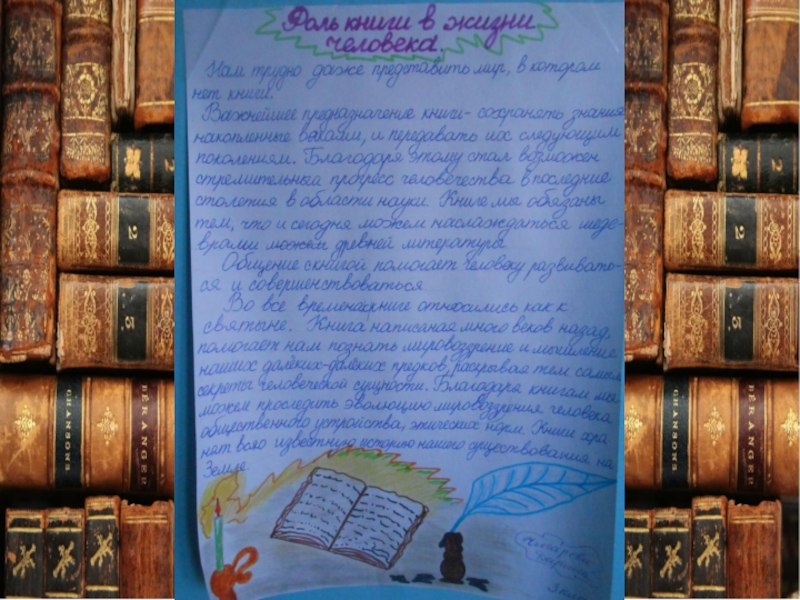 Роль книги в жизни
человека.
Нам трудно даже представить мир, в котором
нет книги.
Важнейшее предназначение книги- сохранять знания
накопленные веками, и передавать их следующим
поколениям. Благодаря этому стал возможен
стремительный прогресс человечества в последние
столетия в области науки. Книге мы обязаны
тем, что и сегодня можем наслаждаться шеде-
врами древней литературы.
Общение с книгой помогает человеку развивать-
ся и совершенствоваться
Во все времена к книге относились как к
святыне. Книга написаная много веков назад,
помогает нам познать мировоззрение и мышление
наших далёких-далёких предков, раскрывая тем самым
секреты человеческой сущности. Благодаря книгам мы
можем проследить эволюцию мировоззрения человека
общественного устройства, этических норм. Книги хра
нят всю известную историю нашего существования на
Земле.
2
5
CHANSONS
BÉRANGER
2
5
BÉRANGER
CHANSONS